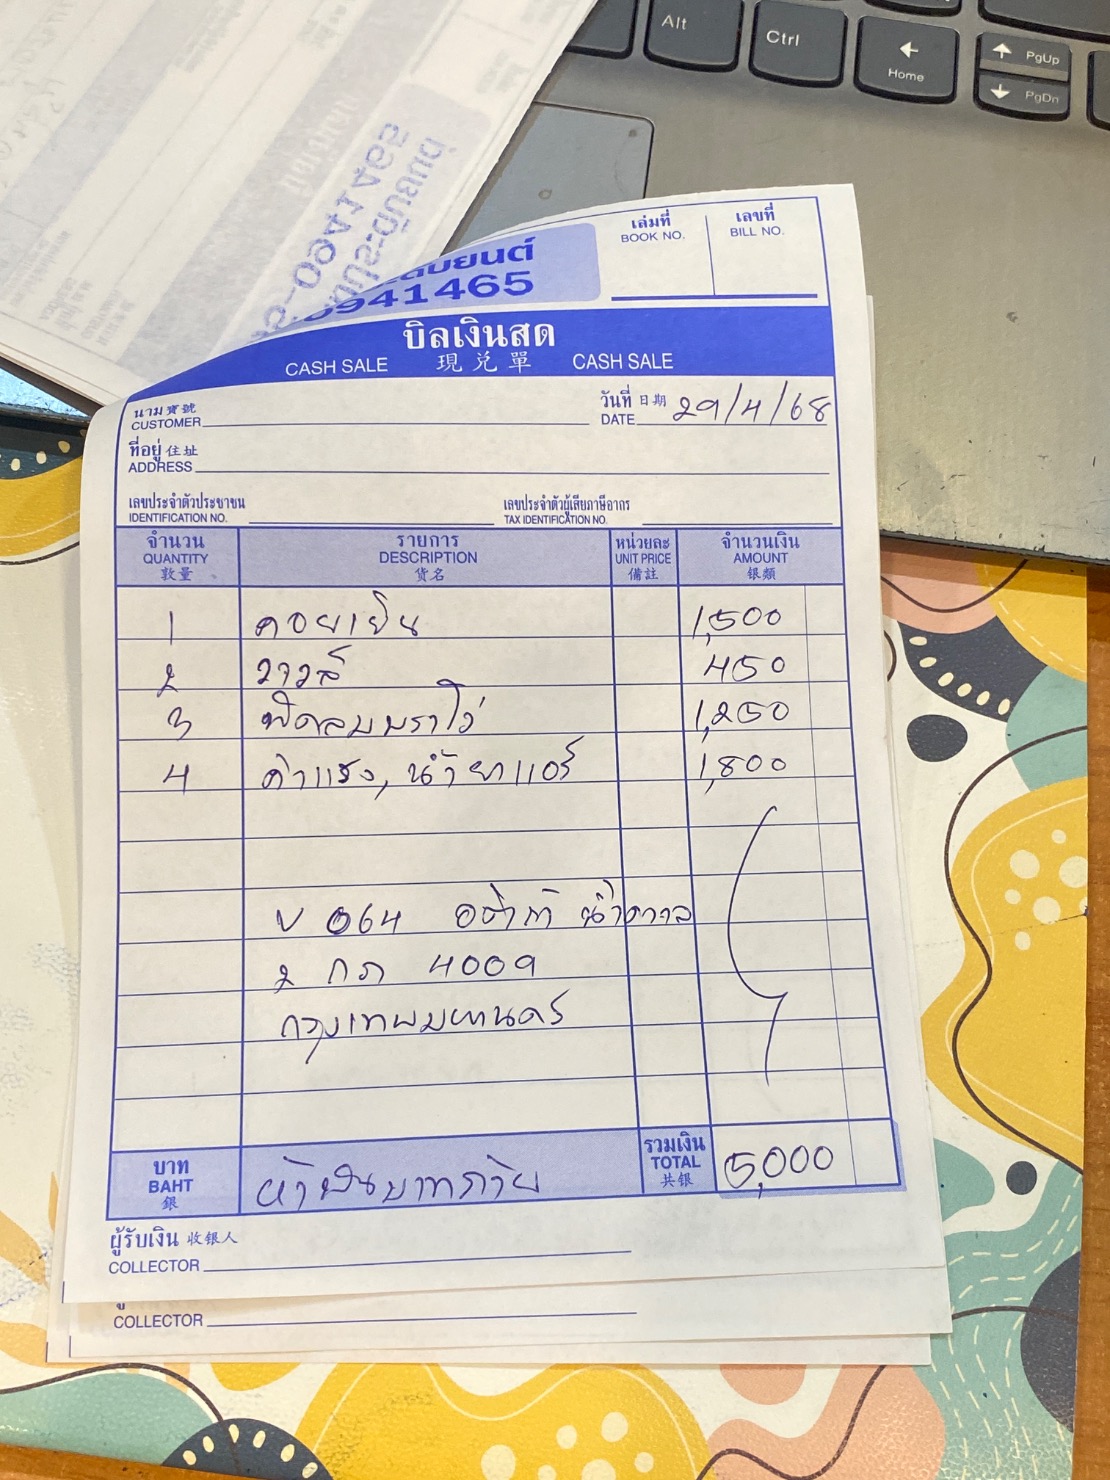 Alt
Ctrl
Home
PgUp
PgDn
941465
ยนต์
เล่มที่
BOOK NO.
เลขที่
BILL NO.
บิลเงินสด
CASH SALE 現兌單 CASH SALE
นาม寶號
CUSTOMER
วันที่ 日期
DATE 29/4/68
ที่อยู่ 住址
ADDRESS
เลขประจำตัวประชาชน
IDENTIFICATION NO.
เลขประจำตัวผู้เสียภาษีอากร
TAX IDENTIFICATION NO.
จำนวน รายการ หน่วยละ จำนวนเงิน
QUANTITY DESCRIPTION UNIT PRICE AMOUNT
數量 貨名 備註 銀類
1 คอยเย็น 1,500
2 วาวล์ 450
3 พัดลมบราโว่ 1,250
4 ค่าแรง, น้ำยาแอร์ 1,800
V 064 น้ำตาล
2 กภ 4009
กรุงเทพมหานคร
บาท
BAHT
銀
ห้าพันบาทถ้วย
รวมเงิน
TOTAL
共銀
5,000
ผู้รับเงิน 收銀人
COLLECTOR
COLLECTOR